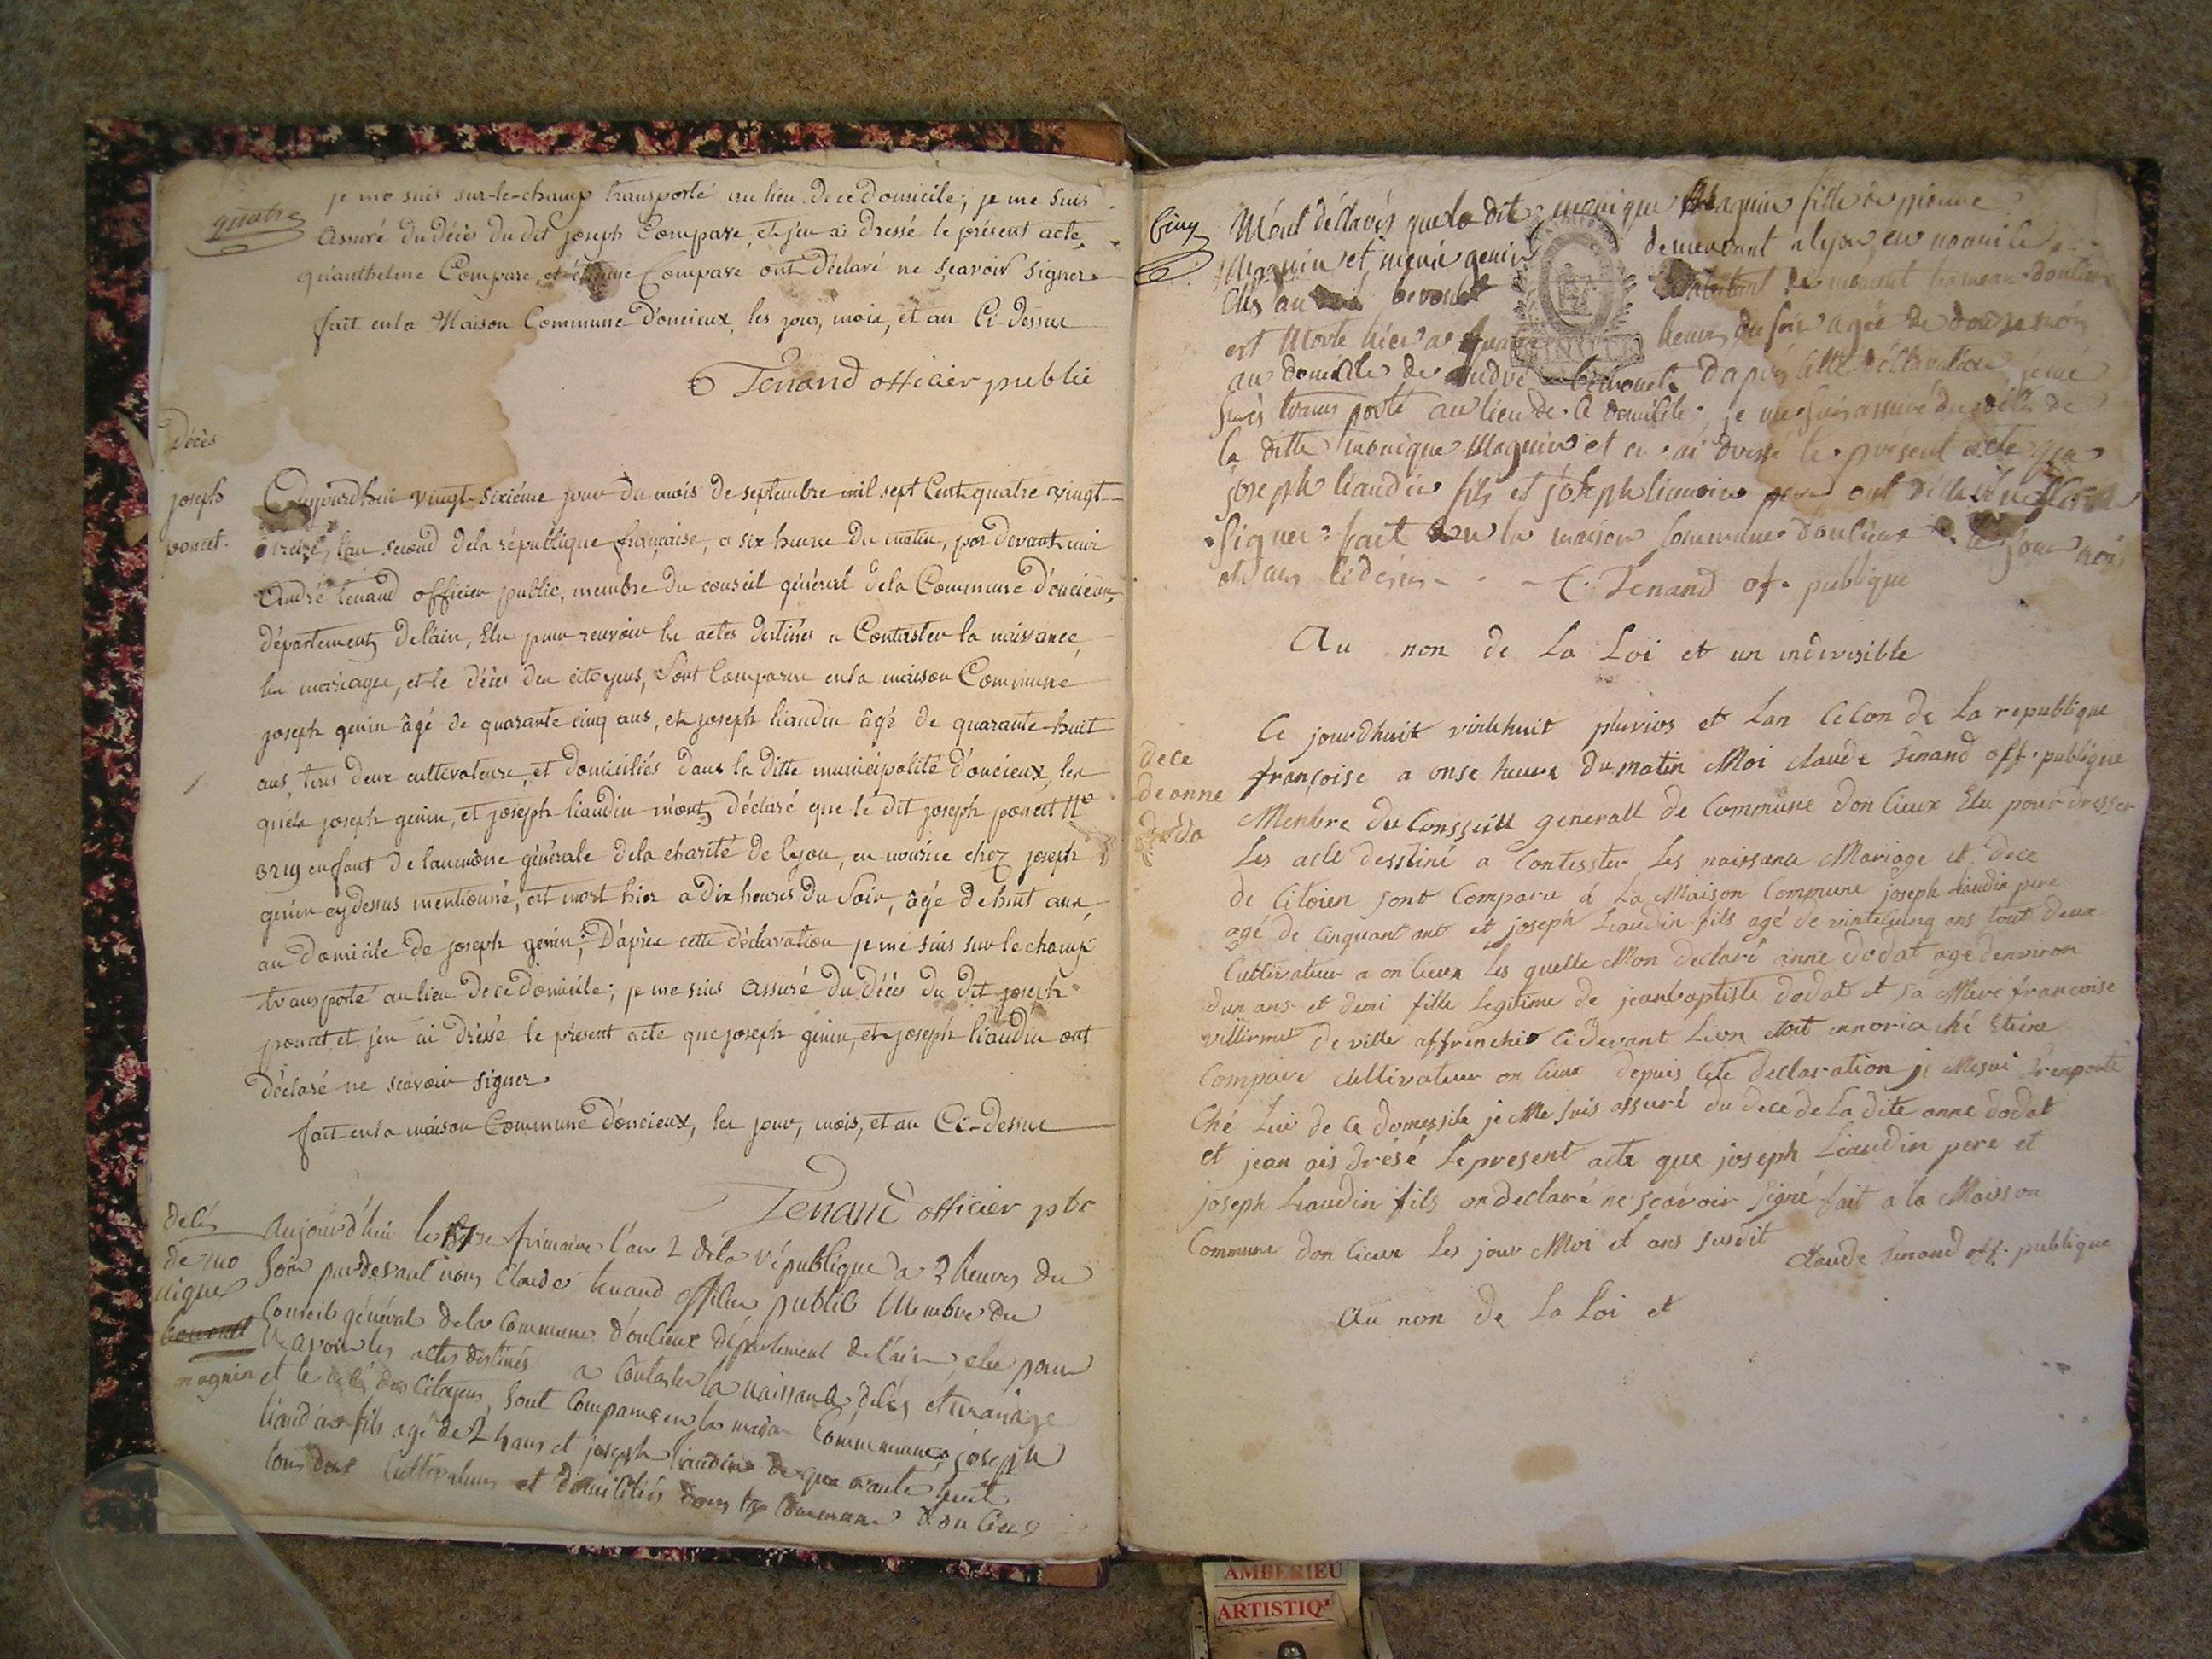 quatre
je me suis sur-le-champ transporté au lieu de ce domicile; je me suis
assuré du décès du dit joseph Compare, et j'en ai dressé le présent acte
qu'anthelme Compare, et étienne Compare ont déclaré ne sçavoir signer
fait en la Maison Commune d'oncieux, les jour, mois, et an Ci-Dessus
Tenand officier public
Décès
joseph
poncet.
Aujourdhui vingt-sixiéme jour du mois de septembre mil sept Cent quatre vingt-
treize, l'an second de la république française, a six heures du matin, par devant moi
andré tenand officier public, membre du conseil général de la Commune d'oncieux,
département de l'ain, Elu pour recevoir les actes destinés a Contaster la naissance,
les mariages, et le décès des citoyens, Sont Comparus en la maison Commune
joseph genin âgé de quarante cinq ans, et joseph liaudin âgé de quarante-huit
ans, tous deux cultivateurs, et domiciliés dans la ditte municipalité d'oncieux, les
quels joseph genin, et joseph liaudin m'ont déclaré que le dit joseph poncet No
3219 enfant de l'aumône générale de la charité de lyon, en nourice chez joseph
genin cy dessus mentionné, est mort hier a dix heures du soir, âgé de huit ans,
au domicile de joseph genin; D'après cette déclaration je me suis sur le champ
transporté au lieu de ce domicile; je me suis assuré du décès du dit joseph
poncet, et j'en ai dressé le présent acte que joseph genin, et joseph liaudin ont
déclaré ne scavoir signer.
fait en la maison Commune d'oncieux, les jour, mois, et an Ci-Dessus
Tenand officier pbc
decès
de mo
nique
magnin
Aujourd'hui le frimaire l'an 2 de la république a 3 heures du
Soir pardevant nous Claude tenand officier public Membre du
Conseil général de la Commune d'oncieux département de l'ain, elu pour
les actes destinés a Contaster la naissance, décès et mariage
et le des Citoyens, Sont Comparus en la maison Commune joseph
liaudin fils agé de ans et joseph liaudin de quarante huit
tous deux Cultivateurs et domiciliés dans la Commune d'oncieux
Cinq
M'ont déclarés que la dite monique Magnin fille de pierre
Magnin et marie genin demeurant a lyon en nourice
chez andré
est Morte hier a quatre heures du soir agée de douze mois
au domicile de andré D'après cette déclaration je me
suis transporté au lieu de ce domicile, je me suis assuré du décès de
la ditte monique Magnin et en ai dressé le présent acte que
joseph liaudin fils et joseph liaudin pere ont déclaré ne
signer fait en la maison Commune d'oncieux le jour mois
et an cidesus C. Tenand of. publique
Au non de La Loi et un indivisible
dece
de anne
doda
Ce jourdhuit vintehuit pluvios et Lan Ceon de La republique
françoise a onse heure du matin Moi claude Tenand off. publique
Menbre du Consseill generall de Commune don cieux Elu pour dresser
Les acte desstiné a Contesster Les naissance Mariage et dece
de Citoien sont Comparu á La Maison Commune joseph Liaudin pere
agé de Cinquant ant et joseph Liaudin fils agé de vintecinq ans tout deux
Cultivateur a on cieux Les quelle Mon declaré anne dodat age denviron
dun ans et demi fille Legitime de jeanbaptiste dodat et sa Mere francoise
villermet de ville affrenchit Cidevant Lion etoit ennoria ché Etiene
Compare cultivateur on cieux depuis Cete declaration je Mesui trenporté
Ché Lui de Ce domessile je Me suis assuré du dece de La dite anne dodat
et jean ais drésé Lepresent acte que joseph Liaudin pere et
joseph Liaudin fils on declaré ne scavoir signé fait a la Maisson
Commune don cieux Les jour Moi et ans susdit
Claude Tenand off. publique
Au non de La Loi et
AMBERIEU
ARTISTIQ